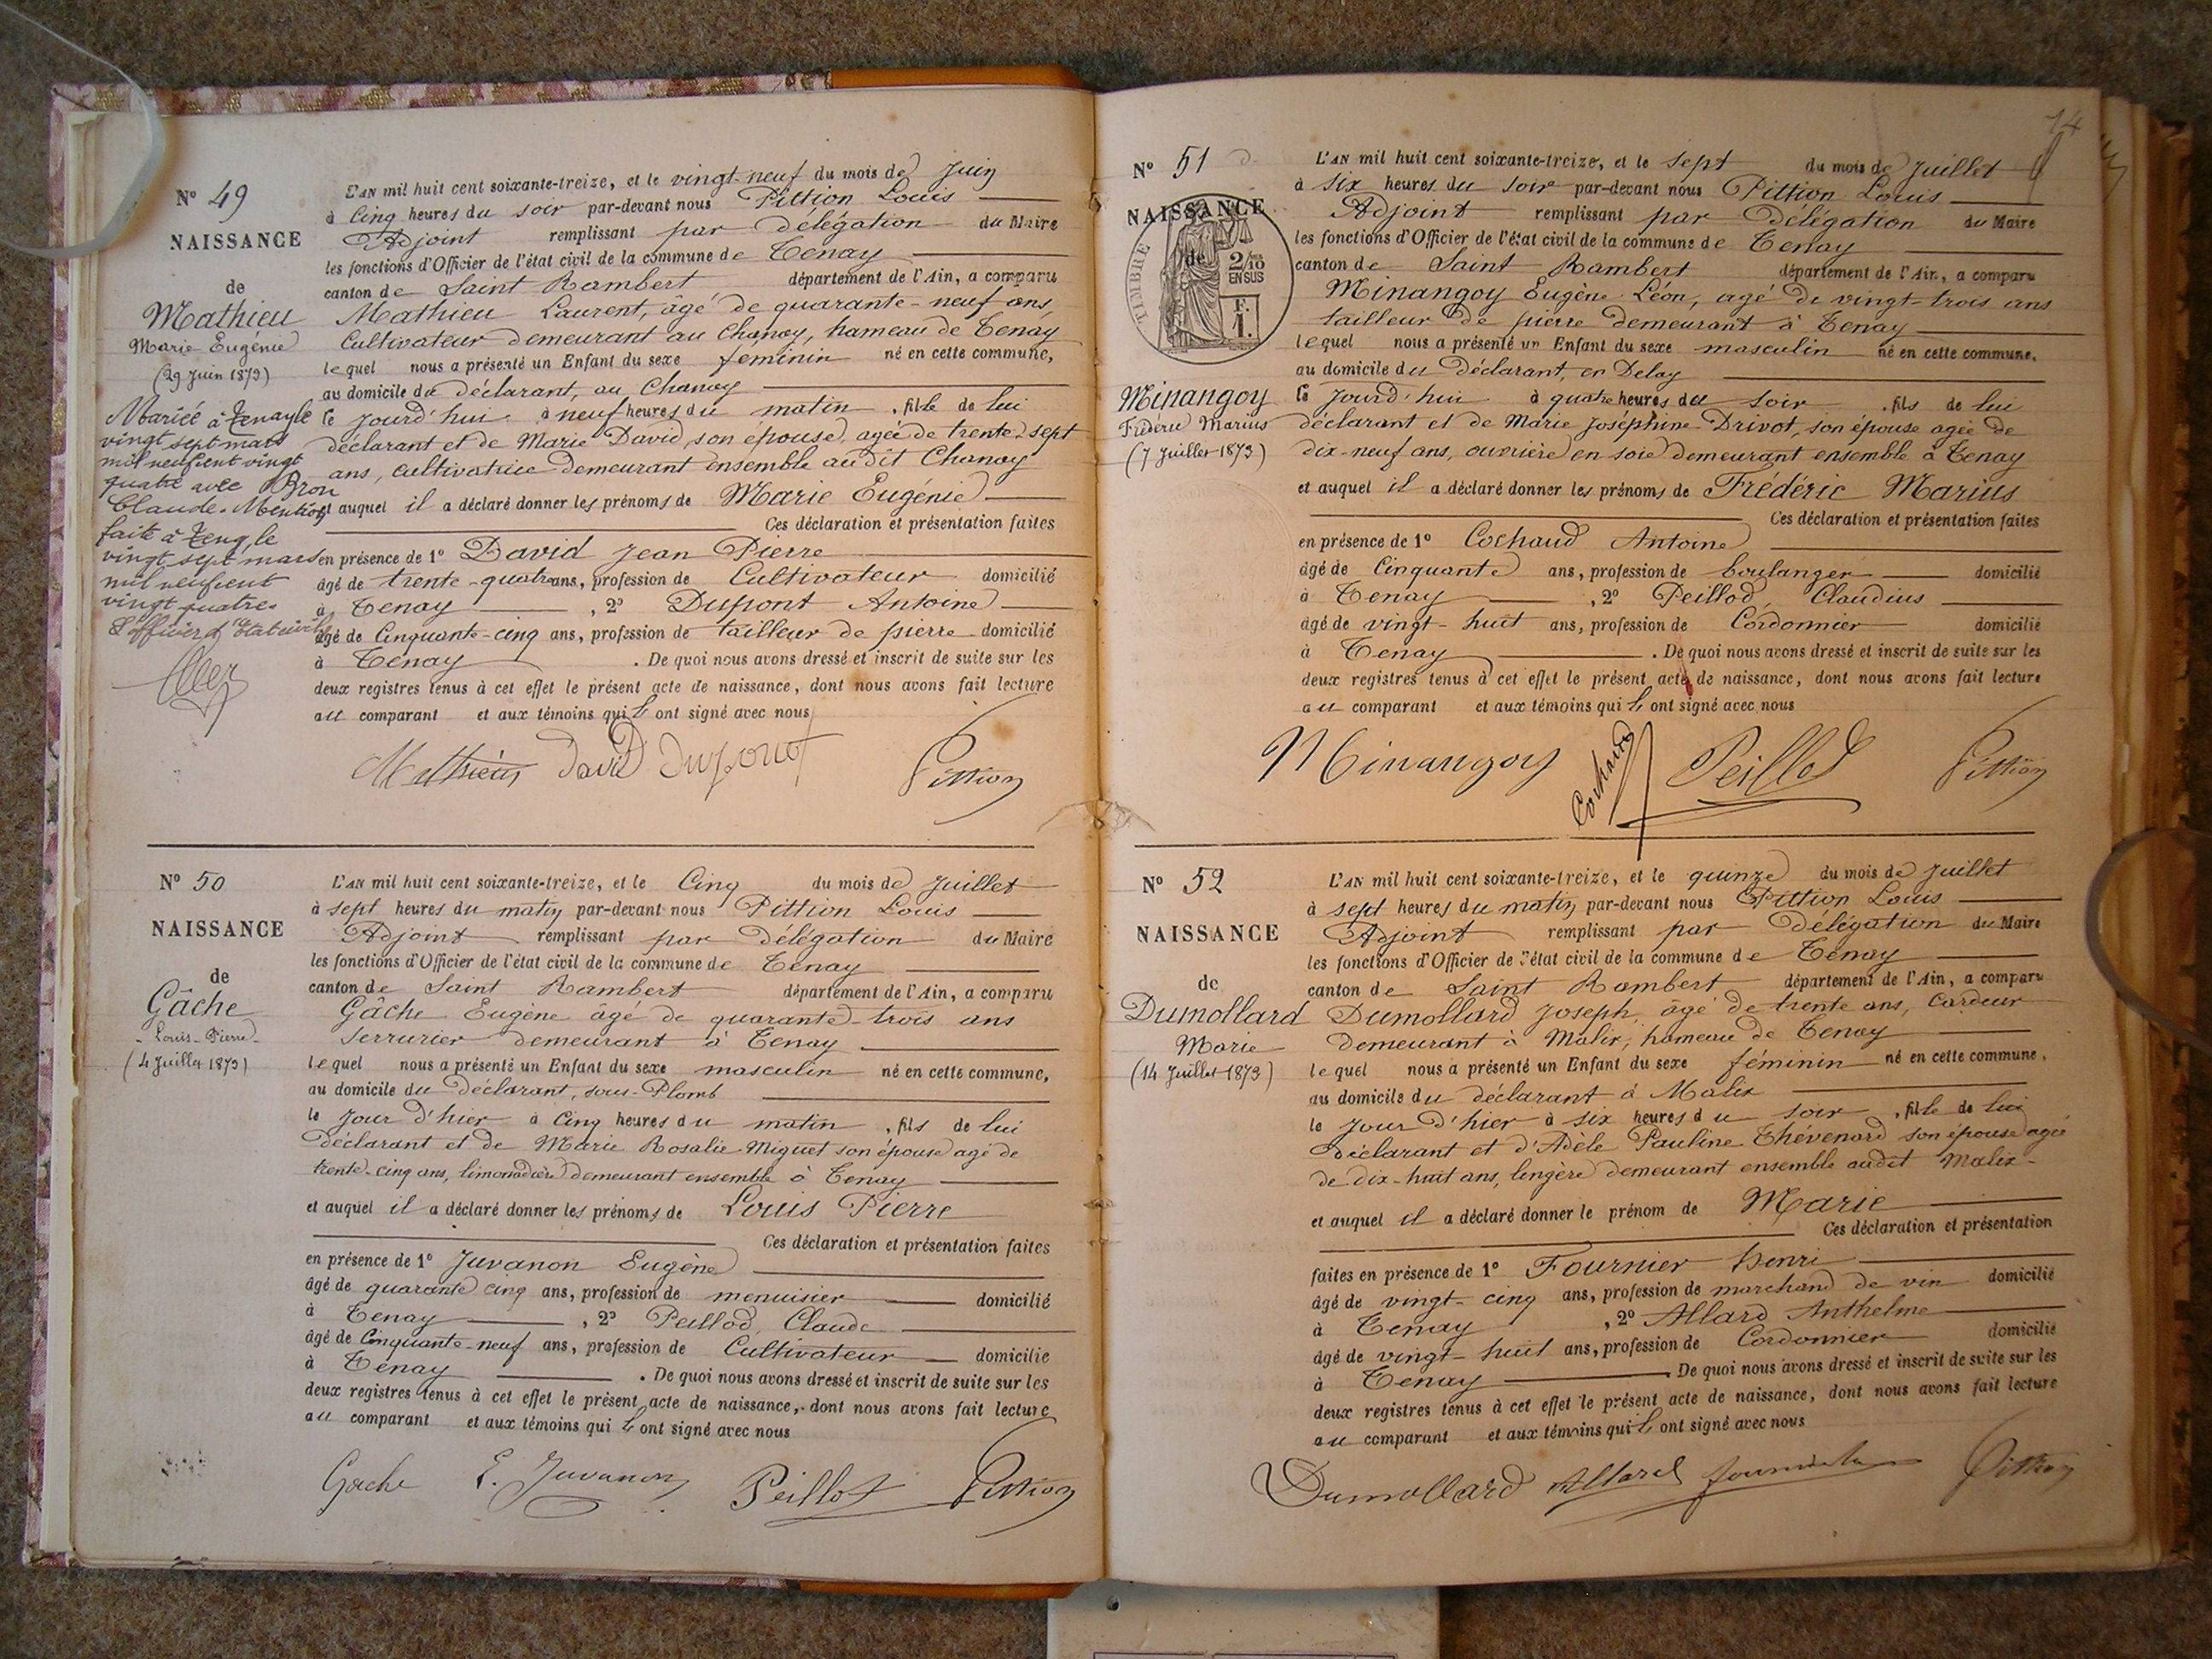 Nº 49
NAISSANCE
de
Mathieu
Marie Eugénie
(29 Juin 1873)
Mariée à Tenay le
vingt sept mars
mil neuf cent vingt
quatre avec Bron
Claude. Mention
faite à Tenay, le
vingt-sept mars
mil neuf cent
vingt quatre.
L'officier d'état civil
L'AN mil huit cent soixante-treize, et le vingt-neuf du mois de Juin
à Cinq heures du soir par-devant nous Pittion Louis
Adjoint remplissant par délégation du Maire
les fonctions d'Officier de l'état civil de la commune de Tenay
canton de Saint Rambert département de l'Ain, a comparu
Mathieu Laurent, âgé de quarante-neuf ans,
Cultivateur demeurant au Chanay, hameau de Tenay
lequel nous a présenté un Enfant du sexe feminin né en cette commune,
au domicile du déclarant, au Chanay
le jourd'hui à neuf heures du matin, fille de lui
déclarant et de Marie David, son épouse, agée de trente-sept
ans, cultivatrice demeurant ensemble audit Chanay
et auquel il a déclaré donner les prénoms de Marie Eugénie
Ces déclaration et présentation faites
en présence de 1º David Jean Pierre
âgé de trente-quatre ans, profession de Cultivateur domicilié
à Tenay, 2º Dupont Antoine
âgé de Cinquante-cinq ans, profession de tailleur de pierre domicilié
à Tenay. De quoi nous avons dressé et inscrit de suite sur les
deux registres tenus à cet effet le présent acte de naissance, dont nous avons fait lecture
au comparant et aux témoins qui l'ont signé avec nous
Mathieu David Dupont Pittion
Nº 50
NAISSANCE
de
Gâche
Louis-Pierre
(4 Juillet 1873)
L'AN mil huit cent soixante-treize, et le Cinq du mois de Juillet
à sept heures du matin par-devant nous Pittion Louis
Adjoint remplissant par délégation du Maire
les fonctions d'Officier de l'état civil de la commune de Tenay
canton de Saint Rambert département de l'Ain, a comparu
Gâche Eugène âgé de quarante-trois ans
Serrurier demeurant à Tenay
lequel nous a présenté un Enfant du sexe masculin né en cette commune,
au domicile du déclarant, sous-Plomb
le jour d'hier à Cinq heures du matin, fils de lui
déclarant et de Marie Rosalie Miguet son épouse agé de
trente-cinq ans, limonadière demeurant ensemble à Tenay
et auquel il a déclaré donner les prénoms de Louis Pierre
Ces déclaration et présentation faites
en présence de 1º Juvanon Eugène
âgé de quarante cinq ans, profession de menuisier domicilié
à Tenay, 2º Peillod Claude
âgé de Cinquante-neuf ans, profession de Cultivateur domicilié
à Tenay. De quoi nous avons dressé et inscrit de suite sur les
deux registres tenus à cet effet le présent acte de naissance, dont nous avons fait lecture
au comparant et aux témoins qui l'ont signé avec nous
Gache E. Juvanon Peillot Pittion
14
Nº 51
NAISSANCE
de
TIMBRE
2/10
EN SUS
F.
1.
Minangoy
Frédéric Marius
(7 Juillet 1873)
L'AN mil huit cent soixante-treize, et le sept du mois de Juillet
à six heures du soir par-devant nous Pittion Louis
Adjoint remplissant par délégation du Maire
les fonctions d'Officier de l'état civil de la commune de Tenay
canton de Saint Rambert département de l'Ain, a comparu
Minangoy Eugène Léon, agé de vingt-trois ans
tailleur de pierre demeurant à Tenay
lequel nous a présenté un Enfant du sexe masculin né en cette commune,
au domicile du déclarant, en Delay
le jourd'hui à quatre heures du soir, fils de lui
déclarant et de Marie Joséphine Drivot, son épouse agée de
dix-neuf ans, ouvrière en soie demeurant ensemble à Tenay
et auquel il a déclaré donner les prénoms de Frédéric Marius
Ces déclaration et présentation faites
en présence de 1º Cochaud Antoine
âgé de Cinquante ans, profession de boulanger domicilié
à Tenay, 2º Peillod Claudius
âgé de vingt-huit ans, profession de Cordonnier domicilié
à Tenay. De quoi nous avons dressé et inscrit de suite sur les
deux registres tenus à cet effet le présent acte de naissance, dont nous avons fait lecture
au comparant et aux témoins qui l'ont signé avec nous
Minangoy Cochard Peillod Pittion
Nº 52
NAISSANCE
de
Dumollard
Marie
(14 Juillet 1873)
L'AN mil huit cent soixante-treize, et le quinze du mois de Juillet
à sept heures du matin par-devant nous Pittion Louis
Adjoint remplissant par délégation du Maire
les fonctions d'Officier de l'état civil de la commune de Tenay
canton de Saint Rambert département de l'Ain, a comparu
Dumollard Joseph, âgé de trente ans, Cardeur
demeurant à Malix, hameau de Tenay
lequel nous a présenté un Enfant du sexe féminin né en cette commune,
au domicile du déclarant à Malix
le jour d'hier à six heures du soir, fille de lui
déclarant et d'Adèle Pauline Thévenard son épouse agée
de dix-huit ans, lingère demeurant ensemble audit Malix
et auquel il a déclaré donner le prénom de Marie
Ces déclaration et présentation
faites en présence de 1º Fournier Henri
âgé de vingt-cinq ans, profession de marchand de vin domicilié
à Tenay, 2º Allard Anthelme
âgé de vingt-huit ans, profession de Cordonnier domicilié
à Tenay. De quoi nous avons dressé et inscrit de suite sur les
deux registres tenus à cet effet le présent acte de naissance, dont nous avons fait lecture
au comparant et aux témoins qui l'ont signé avec nous
Dumollard Allard Pittion